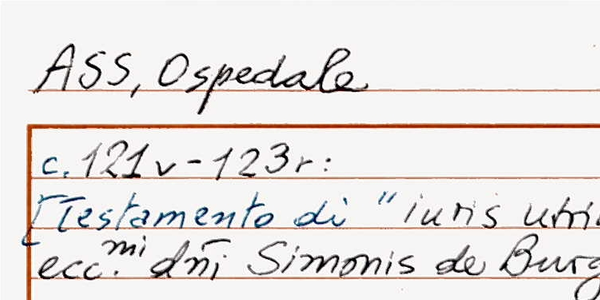 ASS, Ospedale
c. 121v - 123r:
[Testamento di "iuris utri
ecc.mi dn̄i Simonis de Burg